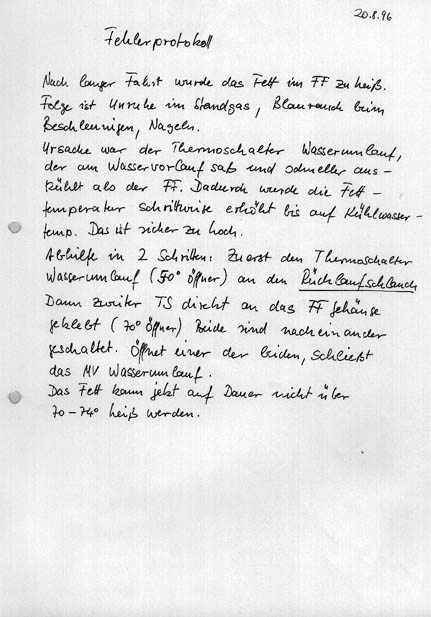 20.8.96
Fehlerprotokoll
Nach langer Fahrt wurde das Fett im FF zu heiß.
Folge ist Unruhe im Standgas, Blaurauch beim
Beschleunigen, Nageln.
Ursache war der Thermoschalter Wasserumlauf,
der am Wasservorlauf saß und schneller aus-
kühlt als der FF. Dadurch wurde die Fett-
temperatur schrittweise erhöht bis auf Kühlwasser-
temp. Das ist sicher zu hoch.
Abhilfe in 2 Schritten: Zuerst den Thermoschalter
Wasserumlauf (50° Öffner) an den Rücklaufschlauch
Dann zweiter TS direkt an das FF Gehäuse
geklebt (70° Öffner) Beide sind nacheinander
geschaltet. Öffnet einer der beiden, schließt
das MV Wasserumlauf.
Das Fett kann jetzt auf Dauer nicht über
70-74° heiß werden.